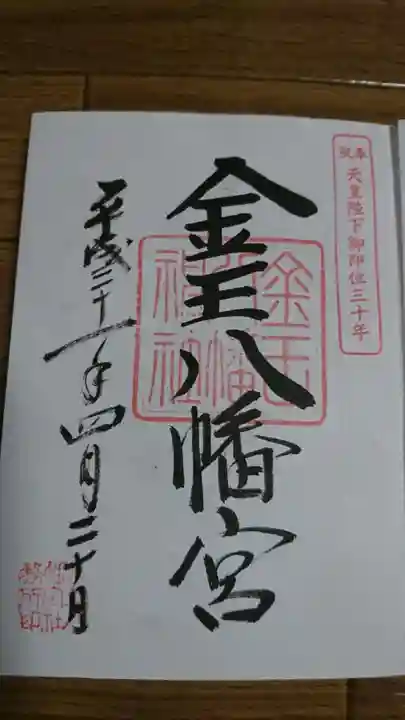 奉祝 天皇陛下御即位三十年
金王八幡宮
金王八幡神社
平成三十一年四月二十日